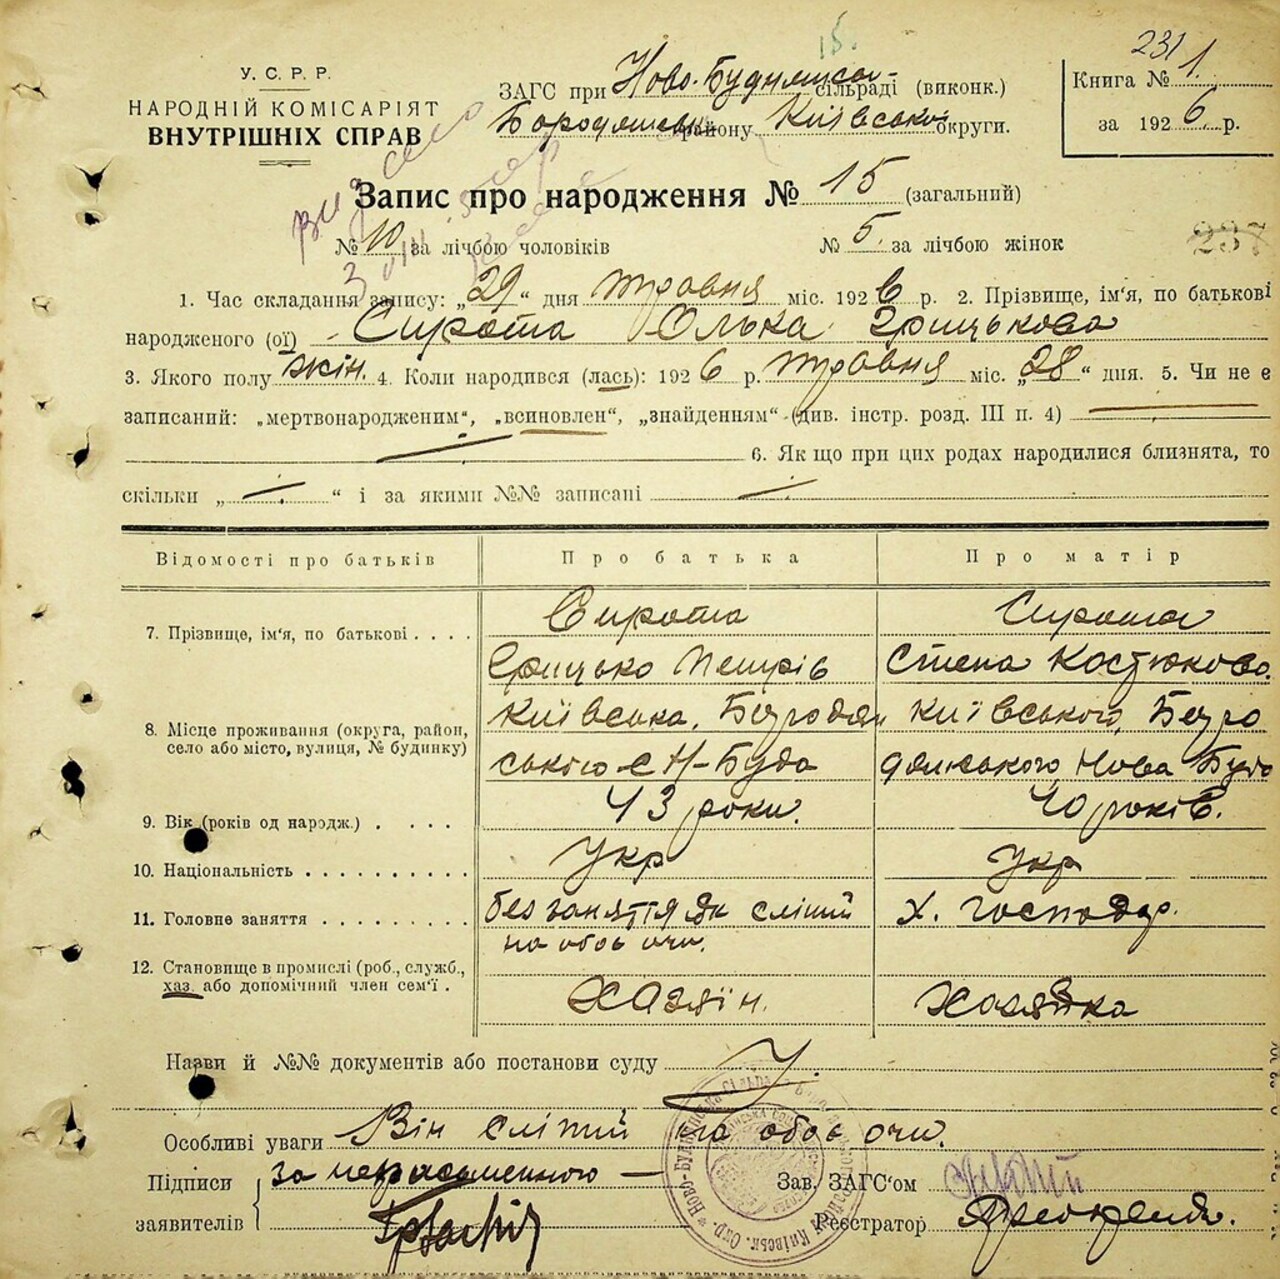 15.
231
У. С. Р. Р.
НАРОДНІЙ КОМІСАРІЯТ
ВНУТРІШНІХ СПРАВ
ЗАГС при Ново-Будянська сільраді (виконк.)
району Київської округи.
Книга № 1.
за 1926 р.
Запис про народження № 15 (загальний)
№ 10 за лічбою чоловіків № 5. за лічбою жінок
237
1. Час складання запису: „29“ дня травня міс. 1926 р. 2. Прізвище, ім'я, по батькові
народженого (ої) Сирота Олька Грицькова
3. Якого полу жін. 4. Коли народився (лась): 1926 р. травня міс. „28“ дня. 5. Чи не є
записаний: „мертвонародженим“, „всиновлен“, „знайденням“ (див. інстр. розд. III п. 4)
6. Як що при цих родах народилися близнята, то
скільки „ “ і за якими №№ записані
Відомості про батьків Про батька Про матір
7. Прізвище, ім'я, по батькові . . . .
Сирота
Грицько Петрів
Сирота
Степа Костюкова.
8. Місце проживання (округа, район,
село або місто, вулиця, № будинку)
Київська, Бородян
ського с Н-Буда
Київського, Боро
дянського Нова Буда
9. Вік (років од народж.) . . . . 43 роки. 40 років.
10. Національність . . . . . . . . . . Укр Укр
11. Головне заняття . . . . . . . . .
без заняття як сліпий
на обоє очи.
х. господар.
12. Становище в промислі (роб., служб.,
хаз. або допомічний член сем'ї .
Хазяїн.
Хазяйка
Назви й №№ документів або постанови суду
Особливі уваги Він сліпий на обоє очи.
Підписи
заявителів
за неписьменного
Зав. ЗАГС'ом
Реєстратор